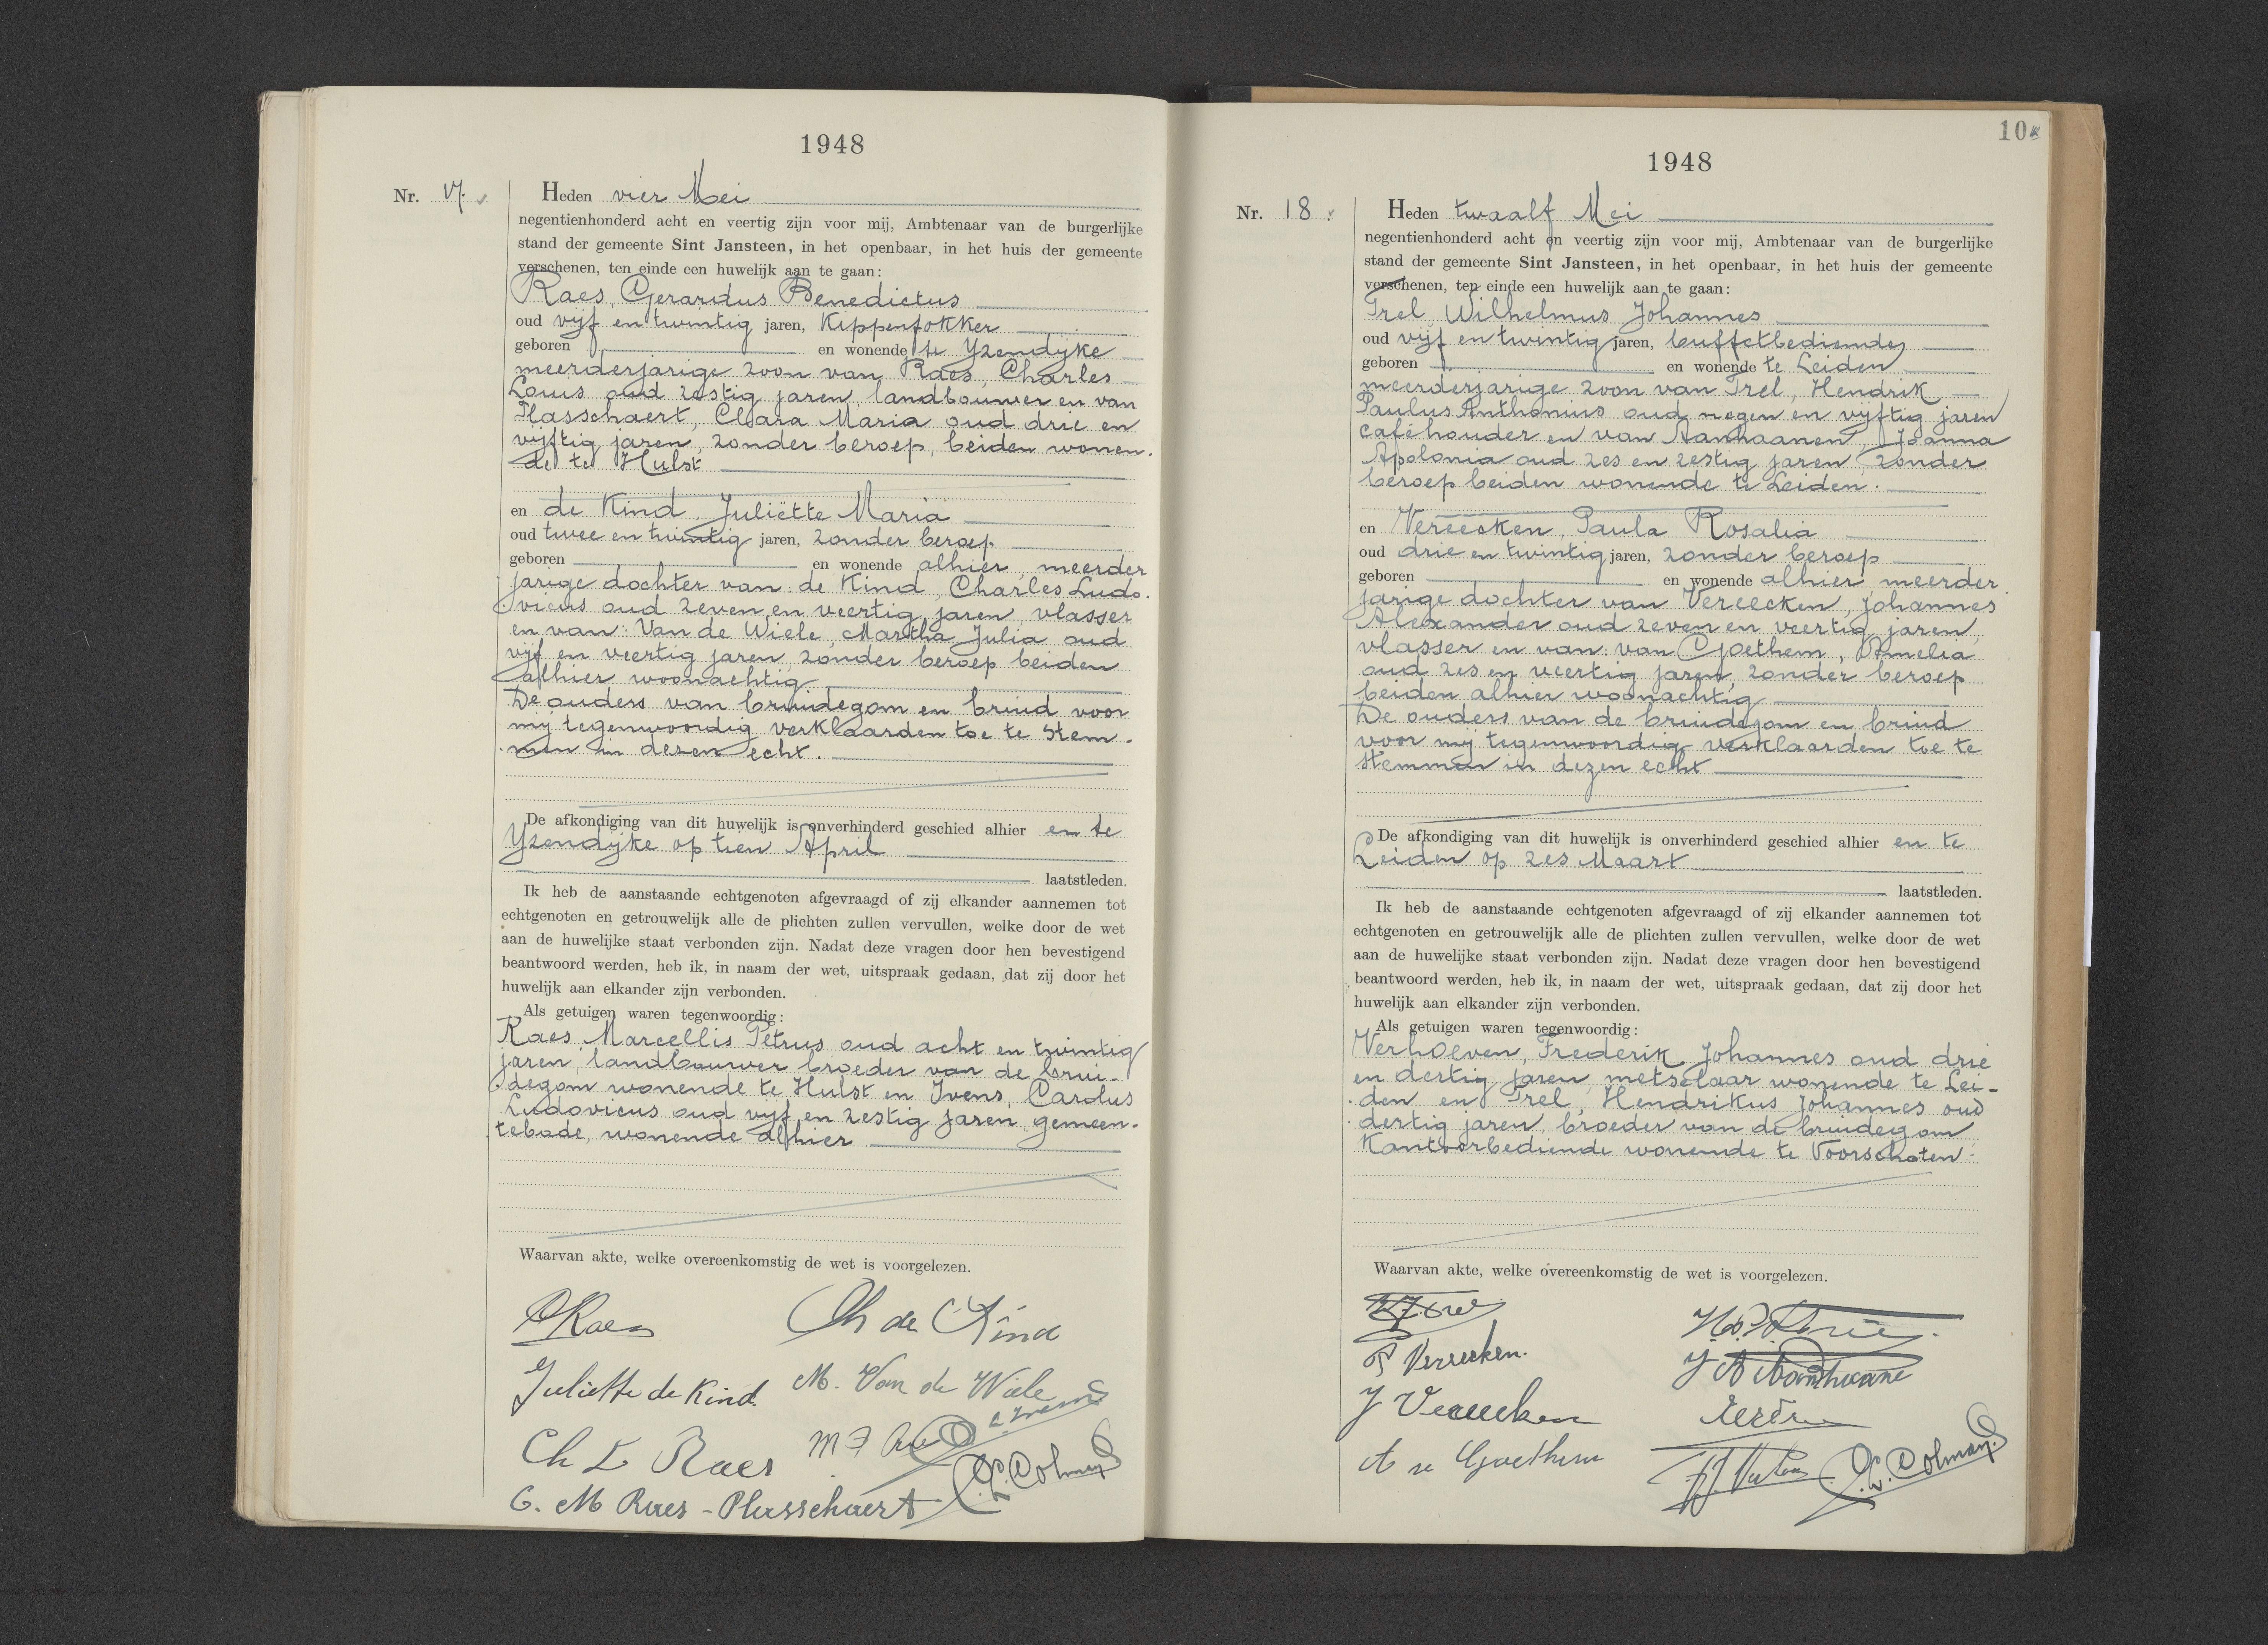 1948
Nr. 17.
Heden vier Mei
negentienhonderd acht en veertig zijn voor mij, Ambtenaar van de burgerlijke
stand der gemeente Sint Jansteen, in het openbaar, in het huis der gemeente
verschenen, ten einde een huwelijk aan te gaan:
Raes, Gerardus Benedictus
oud vijf en twintig jaren, Kippenfokker
geboren en wonende te Yzendyke
meerderjarige zoon van Raes, Charles
Louis oud zestig jaren, landbouwer en van
Plasschaert, Clara Maria oud drie en
vijftig jaren, zonder beroep, beiden wonen.
de te Hulst
en de Kind, Juliëtte Maria
oud twee en twintig jaren, zonder beroep
geboren en wonende alhier, meerder
jarige dochter van: de Kind, Charles Ludo.
vicus oud zeven en veertig jaren, vlasser
en van: Van de Wiele, Martha Julia oud
vijf en veertig jaren, zonder beroep beiden
alhier woonachtig
De ouders van bruidegom en bruid voor
mij tegenwoordig verklaarden toe te stem.
men in dezen echt.
De afkondiging van dit huwelijk is onverhinderd geschied alhier en te
Yzendyke op tien April
laatstleden.
Ik heb de aanstaande echtgenoten afgevraagd of zij elkander aannemen tot
echtgenoten en getrouwelijk alle de plichten zullen vervullen, welke door de wet
aan de huwelijke staat verbonden zijn. Nadat deze vragen door hen bevestigend
beantwoord werden, heb ik, in naam der wet, uitspraak gedaan, dat zij door het
huwelijk aan elkander zijn verbonden.
Als getuigen waren tegenwoordig:
Raes Marcellis Petrus oud acht en twintig
jaren, landbouwer broeder van de brui-
degom wonende te Hulst en Ivens, Carolus
Ludovicus oud vijf en zestig jaren gemeen-
tebode, wonende alhier
Waarvan akte, welke overeenkomstig de wet is voorgelezen.
Raes Ch de Kind
Juliette de Kind. M. Van de Wiele
Ivens
Ch L Raes
Colman
C. M Raes - Plasschaert
10
1948
Nr. 18.
Heden twaalf Mei
negentienhonderd acht en veertig zijn voor mij, Ambtenaar van de burgerlijke
stand der gemeente Sint Jansteen, in het openbaar, in het huis der gemeente
verschenen, ten einde een huwelijk aan te gaan:
Trel, Wilhelmus Johannes
oud vijf en twintig jaren, buffetbediende
geboren en wonende te Leiden
meerderjarige zoon van Trel, Hendrik
Paulus Anthonius oud negen en vijftig jaren
caféhouder en van Hanhaanen, Joanna
Apolonia oud zes en zestig jaren, zonder
beroep beiden wonende te Leiden.
en Vereecken, Paula Rosalia
oud drie en twintig jaren, zonder beroep
geboren en wonende alhier, meerder
jarige dochter van Vereecken, Johannes
Alexander oud zeven en veertig jaren,
vlasser en van: van Goethem, Amelia
oud zes en veertig jaren, zonder beroep
beiden alhier woonachtig
De ouders van de bruidegom en bruid
voor mij tegenwoordig verklaarden toe te
stemmen in dezen echt
De afkondiging van dit huwelijk is onverhinderd geschied alhier en te
Leiden op zes Maart
laatstleden.
Ik heb de aanstaande echtgenoten afgevraagd of zij elkander aannemen tot
echtgenoten en getrouwelijk alle de plichten zullen vervullen, welke door de wet
aan de huwelijke staat verbonden zijn. Nadat deze vragen door hen bevestigend
beantwoord werden, heb ik, in naam der wet, uitspraak gedaan, dat zij door het
huwelijk aan elkander zijn verbonden.
Als getuigen waren tegenwoordig:
Verhoeven, Frederik Johannes oud drie
en dertig jaren, metselaar wonende te Lei-
den en Trel, Hendrikus Johannes oud
dertig jaren, broeder van de bruidegom
Kantoorbediende wonende te Voorschoten.
Waarvan akte, welke overeenkomstig de wet is voorgelezen.
P Vereecken.
J Vereecken
A v Goethem
Colman